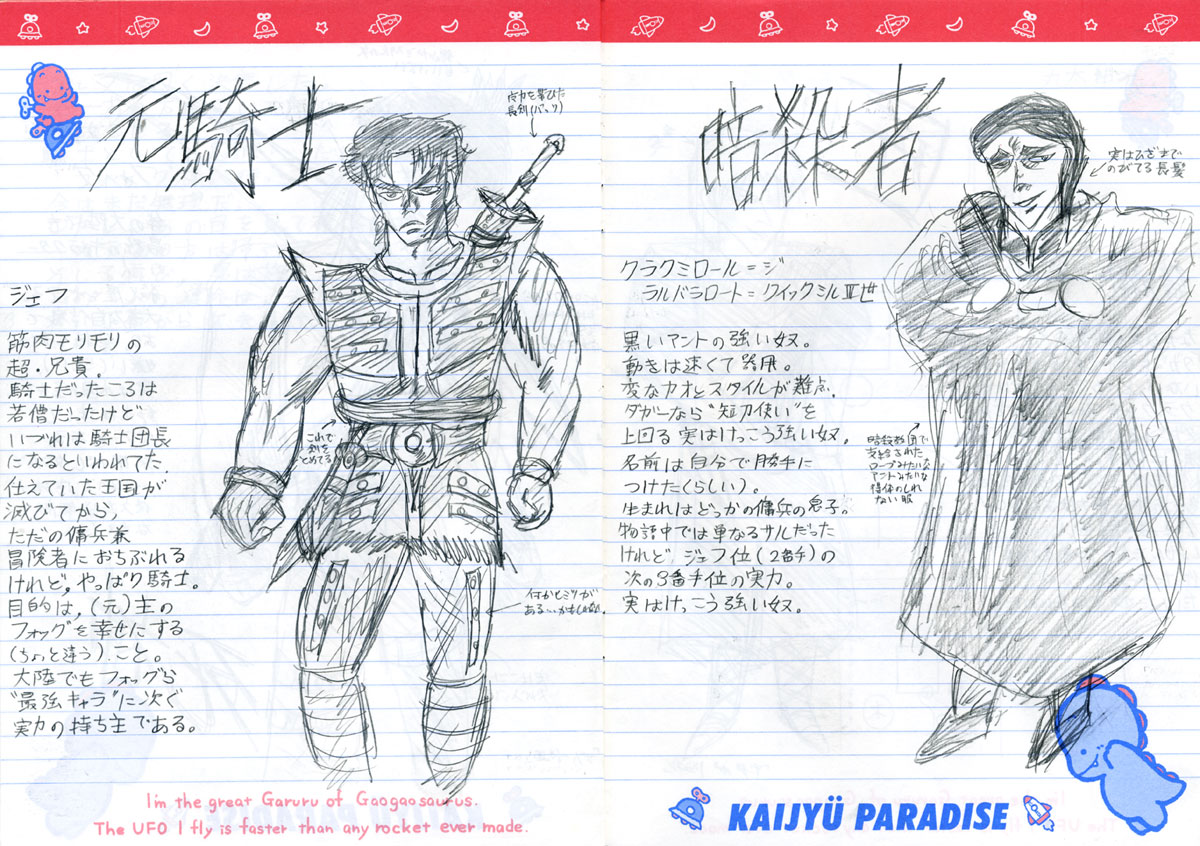 元騎士
長剣(バック)
ジェフ
筋肉モリモリの
超・兄貴.
騎士だったころは
若僧だったけど
いづれは騎士団長
になるといわれてた.
仕えていた王国が
滅びてから,
ただの傭兵兼
冒険者におちぶれる
けれど,やっぱり騎士。
目的は,(元)主の
フォッグを幸せにする
(ちょっと違う).こと。
大陸でもフォッグら
"最強キャラ"に次ぐ
実力の持ち主である。
これで
剣を
とめてる
何かヒミツが
ある…かもしれない.
I'm the great Garuru of Gaogaosaurus.
The UFO I fly is faster than any rocket ever made.
暗殺者
実はひざまで
のびてる長髪
クラクミロール=ジ
ラルバラロート=クイックシルⅢ世
黒いアントの強い奴。
動きは速くて器用。
変なカオとスタイルが難点.
ダガーなら"短刀使い"を
上回る実はけっこう強い奴。
名前は自分で勝手に
つけた(らしい)。
生まれはどっかの傭兵の息子。
物語中では単なるサルだった
けれど,ジェフ位(2番手)の
次の3番手位の実力。
実はけっこう強い奴。
暗殺教団で
支給された
ローブみたいな
アントみたいな
得体のしれ
ない服
KAIJYÜ PARADISE